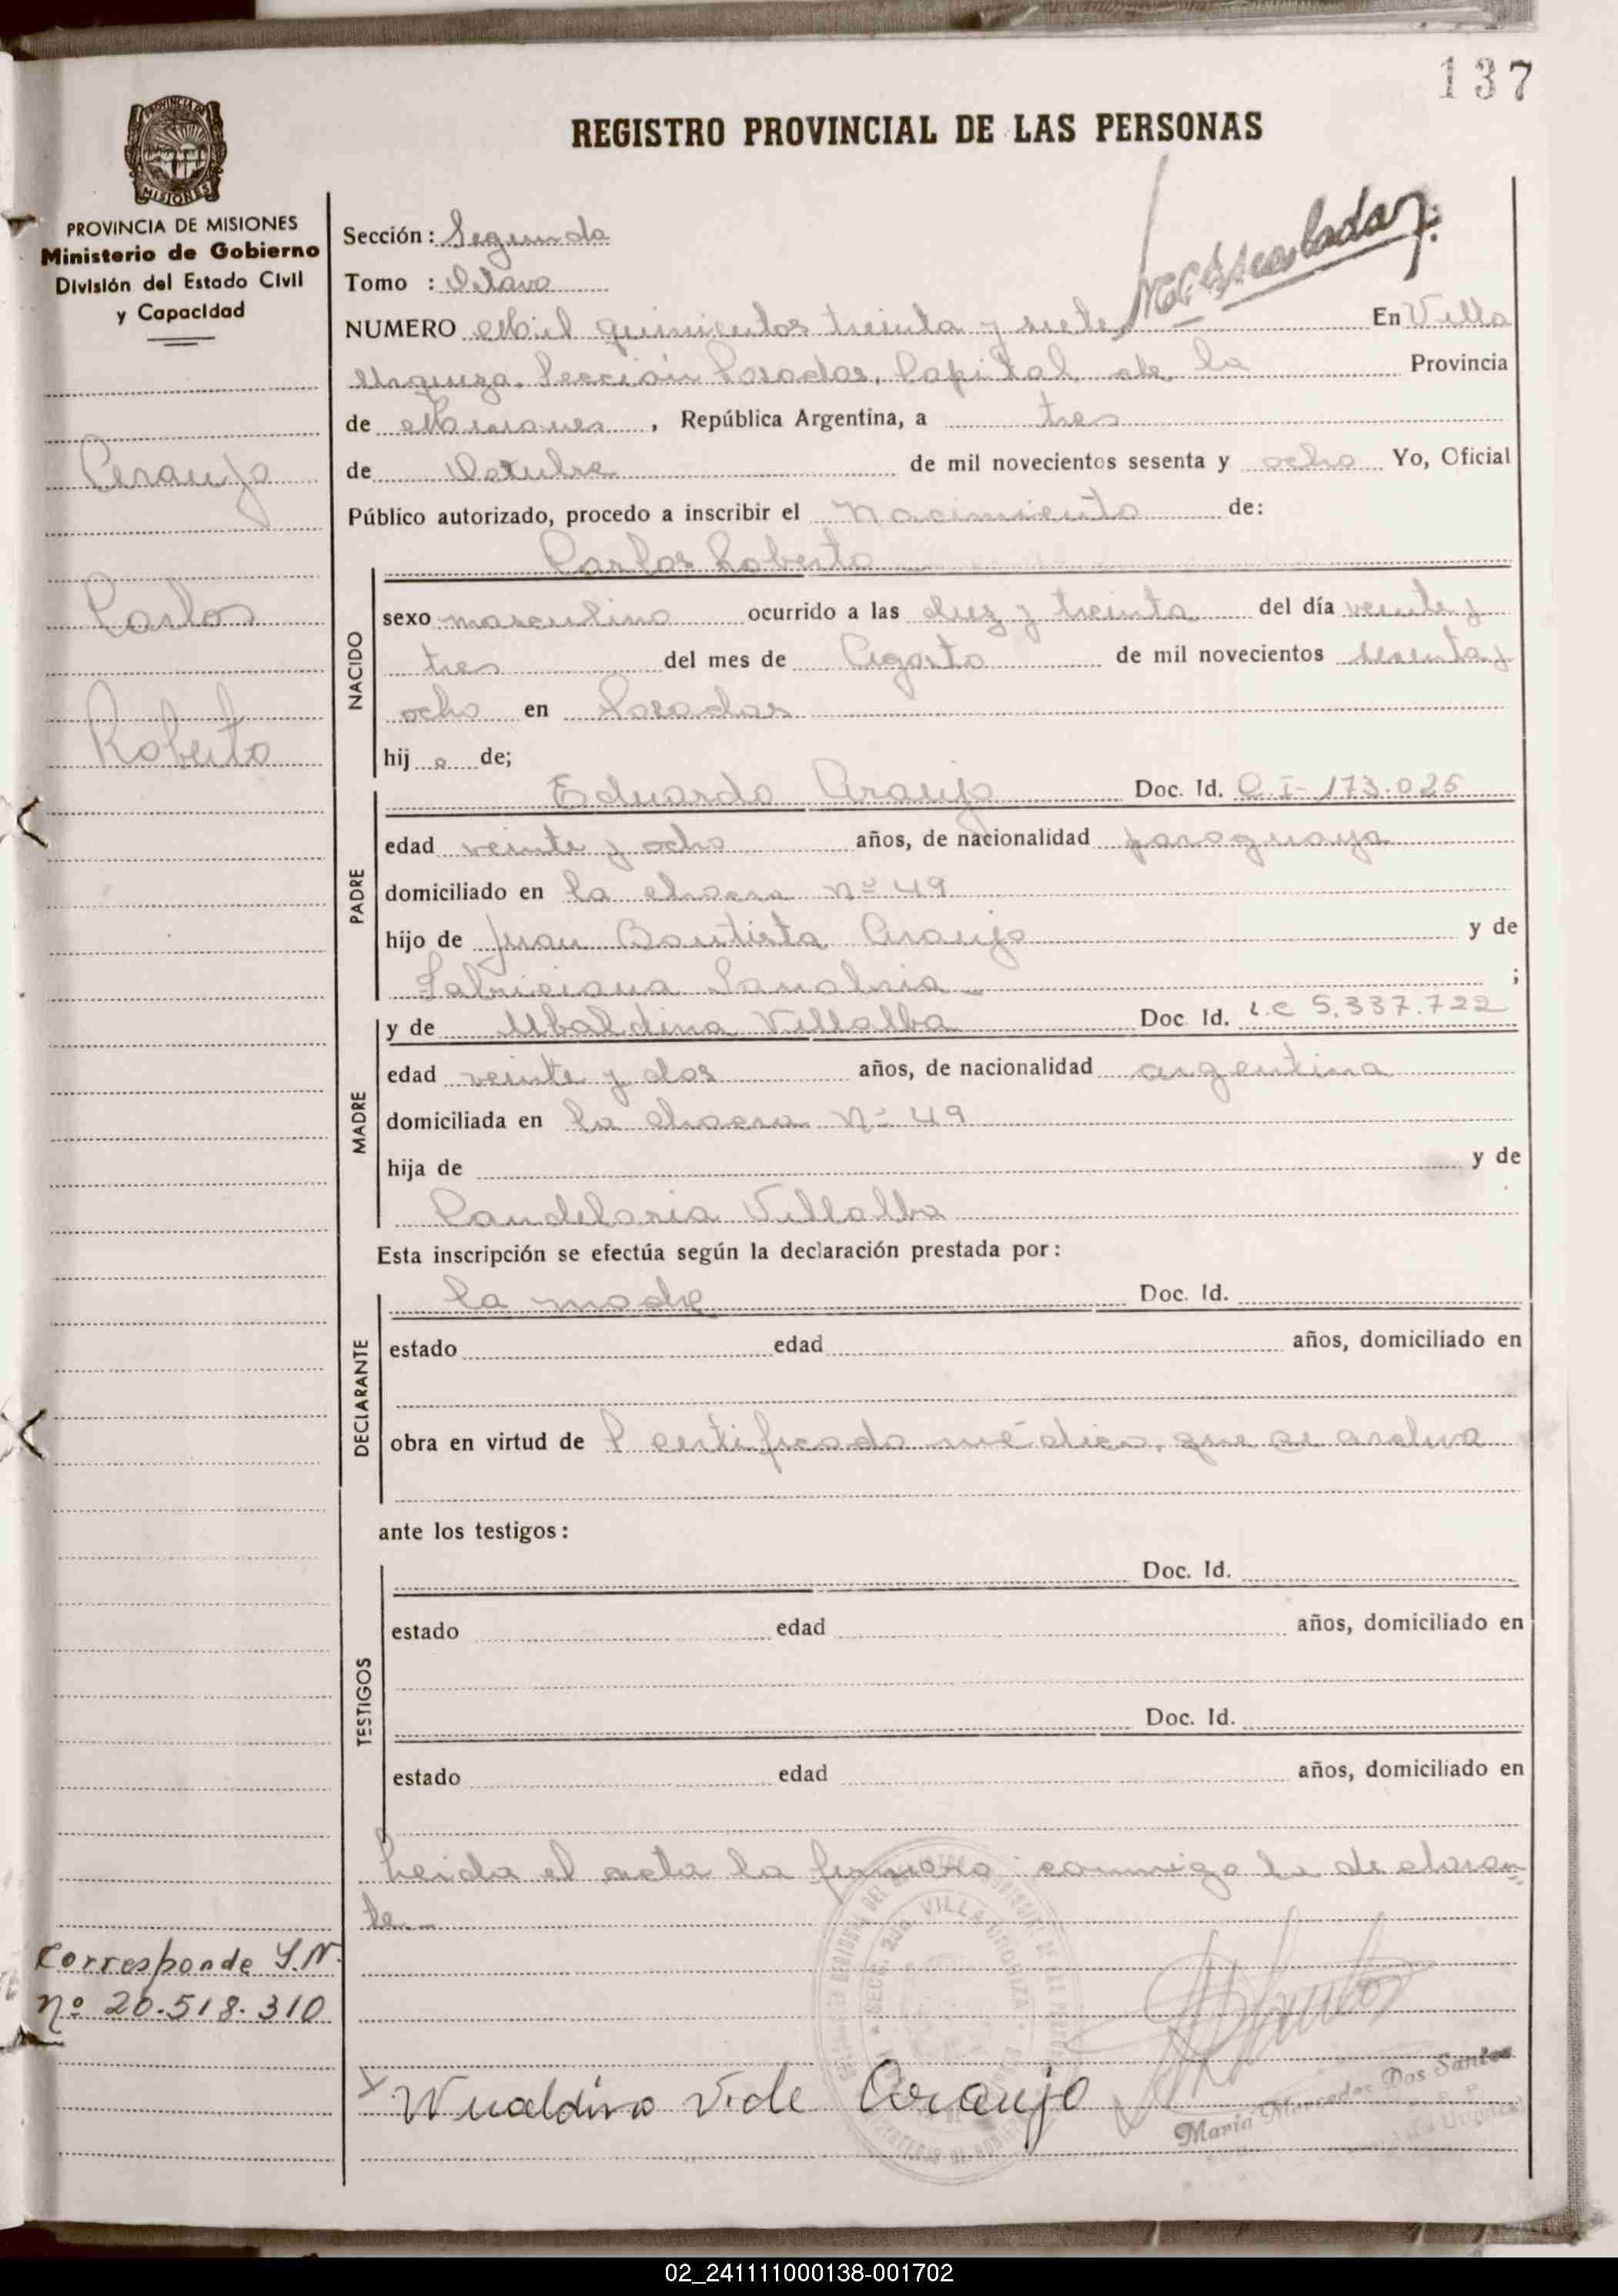 137
REGISTRO PROVINCIAL DE LAS PERSONAS
PROVINCIA DE MISIONES
MISIONES
PROVINCIA DE MISIONES
Ministerio de Gobierno
División del Estado Civil
y Capacidad
Araujo
Carlos
Roberto
Corresponde I.N.
nº 20.518.310
Sección: Segunda
Tomo : Octavo
NUMERO Mil quinientos treinta y siete En Villa
Urquiza, Sección Posadas, Capital de la Provincia
de Misiones, República Argentina, a tres
de Octubre de mil novecientos sesenta y ocho Yo, Oficial
Público autorizado, procedo a inscribir el Nacimiento de:
NACIDO
Carlos Roberto
sexo masculino ocurrido a las diez y treinta del día veinte y
tres del mes de Agosto de mil novecientos sesenta y
ocho en Posadas
hij o de;
PADRE
Eduardo Araujo Doc. Id. C.I-173.025
edad veinte y ocho años, de nacionalidad paraguaya
domiciliado en la chacra nº 49
hijo de Juan Bautista Araujo y de
Fabriciana Sanabria ;
MADRE
y de Ubaldina Villalba Doc. Id. L.C 5.337.722
edad veinte y dos años, de nacionalidad argentina
domiciliada en la chacra Nº 49
hija de y de
Candelaria Villalba
Esta inscripción se efectúa según la declaración prestada por:
DECLARANTE
la madre Doc. Id.
estado edad años, domiciliado en
obra en virtud de l certificado médico, que se archiva
ante los testigos:
TESTIGOS
Doc. Id.
estado edad años, domiciliado en
Doc. Id.
estado edad años, domiciliado en
Leida el acta la firmara conmigo la declaran
te.-
SECC. 2da. VILLA URQUIZA
Wualdina V. de Araujo
María Mercedes Dos Santos
02_241111000138-001702